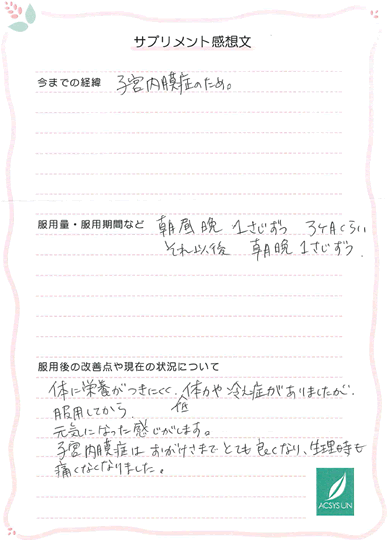 サプリメント感想文
今までの経緯 子宮内膜症のため。
服用量・服用期間など 朝昼晩 1さじずつ 3ヶ月くらい
それ以後 朝晩 1さじずつ.
服用後の改善点や現在の状況について
体に栄養がつきにくく、体力や冷え症がありましたが、
服用してから、 低
元気になった感じがします。
子宮内膜症は おかげさまで とても良くなり、生理時も
痛くなくなりました。
ACSYSUN